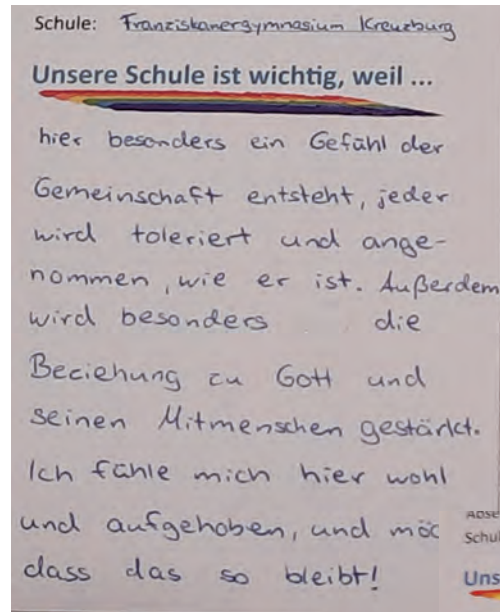 Schule: Franziskanergymnasium Kreuzburg
Unsere Schule ist wichtig, weil ...
hier besonders ein Gefühl der
Gemeinschaft entsteht, jeder
wird toleriert und ange-
nommen, wie er ist. Außerdem
wird besonders die
Beziehung zu Gott und
seinen Mitmenschen gestärkt.
Ich fühle mich hier wohl
und aufgehoben, und
dass das so bleibt!